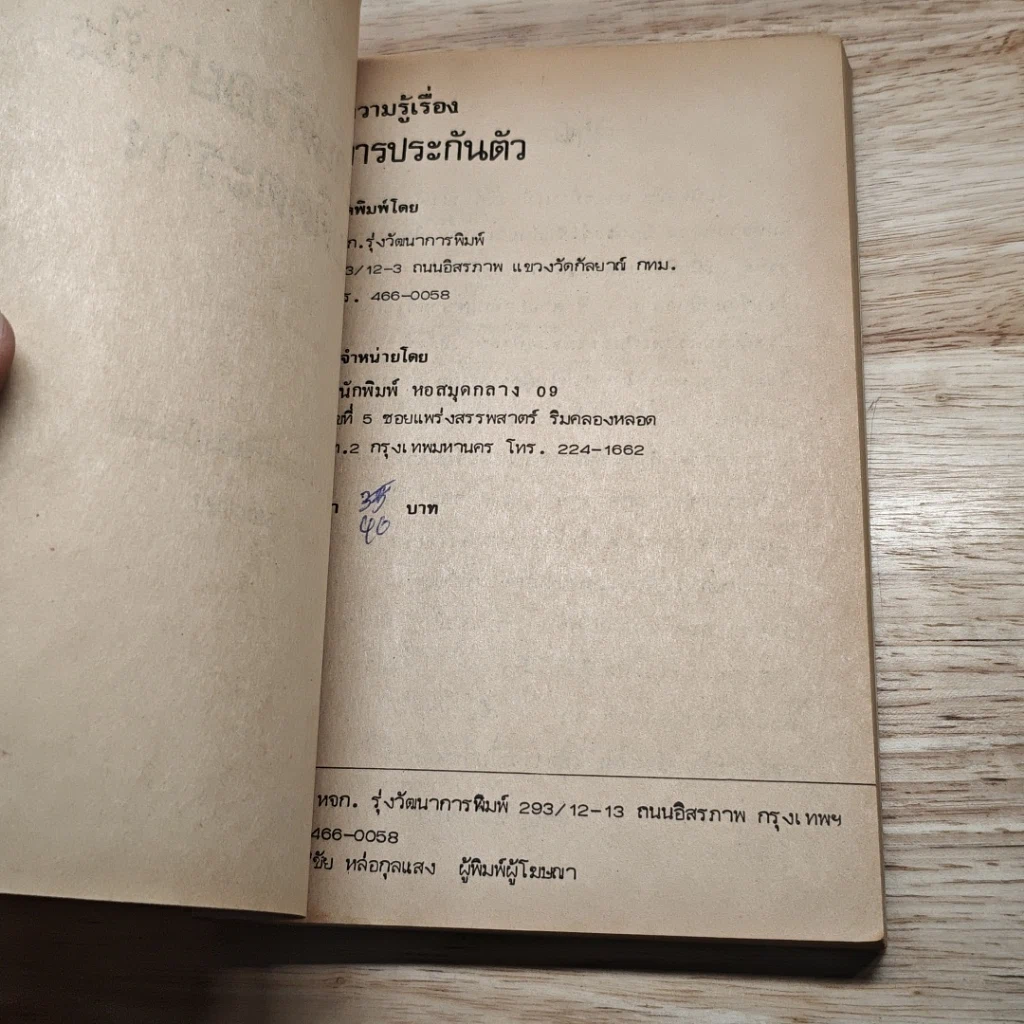 ความรู้เรื่อง
การประกันตัว
พิมพ์โดย
ก. รุ่งวัฒนาการพิมพ์
3/12-3 ถนนอิสรภาพ แขวงวัดกัลยาณ์ กทม.
ร. 466-0058
จำหน่ายโดย
นักพิมพ์ หอสมุดกลาง 09
ที่ 5 ซอยแพร่งสรรพสาตร์ ริมคลองหลอด
.2 กรุงเทพมหานคร โทร. 224-1662
35 บาท
40
หจก. รุ่งวัฒนาการพิมพ์ 293/12-13 ถนนอิสรภาพ กรุงเทพฯ
466-0058
ชัย หล่อกุลแสง ผู้พิมพ์ผู้โฆษณา